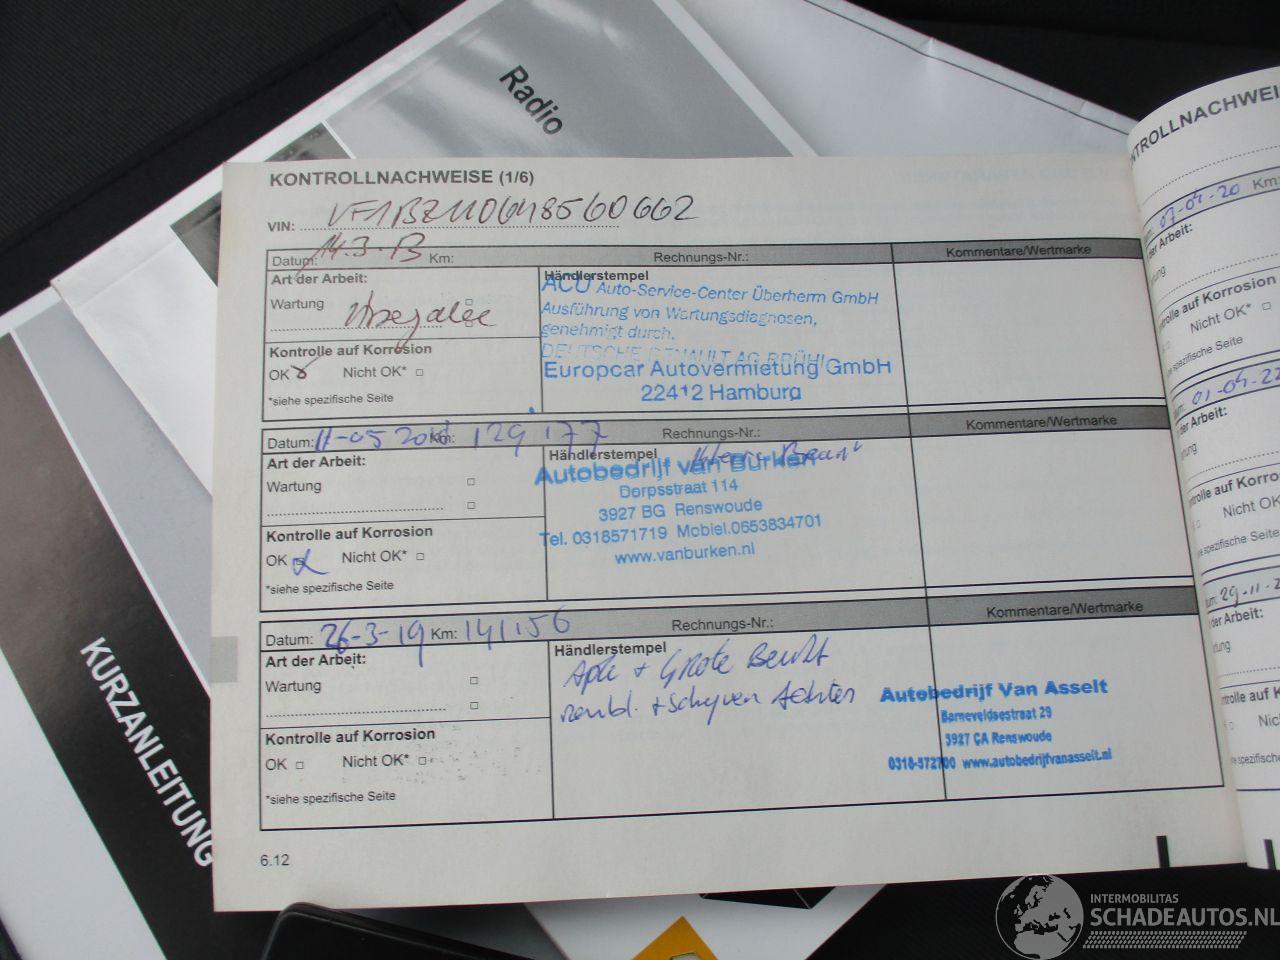 Radio
KURZANLEITUNG
KONTROLLNACHWEISE (1/6)
VIN: VF1BZ110648560662
Datum: 14.3-13 Km: Rechnungs-Nr.: Kommentare/Wertmarke
Art der Arbeit:
Wartung
Kontrolle auf Korrosion
OK Nicht OK*
*siehe spezifische Seite
Händlerstempel
ACU Auto-Service-Center Überherrn GmbH
Ausführung von Wartungsdiagnosen,
genehmigt durch.
DEUTSCHE RENAULT AG BRÜHL
Europcar Autovermietung GmbH
22412 Hamburg
Datum: 11-05 2018 Km: 129 177 Rechnungs-Nr.: Kommentare/Wertmarke
Art der Arbeit:
Wartung
Kontrolle auf Korrosion
OK Nicht OK*
*siehe spezifische Seite
Händlerstempel
Autobedrijf van Burken
Dorpsstraat 114
3927 BG Renswoude
Tel. 0318571719 Mobiel.0653834701
www.vanburken.nl
Datum: 26-3-19 Km: 141156 Rechnungs-Nr.: Kommentare/Wertmarke
Art der Arbeit:
Wartung
Kontrolle auf Korrosion
OK Nicht OK*
*siehe spezifische Seite
Händlerstempel
Apk + Grote Beurt
rembl. + schyven Achter
Autobedrijf Van Asselt
Barneveldsestraat 29
3927 CA Renswoude
0318-572700 www.autobedrijfvanasselt.nl
6.12
NTROLLNACHWEI
07-04-20 Km:
der Arbeit:
Wartung
trolle auf Korrosion
Nicht OK*
he spezifische Seite
01-04-22
der Arbeit:
rtung
trolle auf Korro
Nicht OK
ehe spezifische Se
29-11-2
der Arbeit:
rtung
trolle auf K
Nic
he spezifisch
INTERMOBILITAS
SCHADEAUTOS.NL